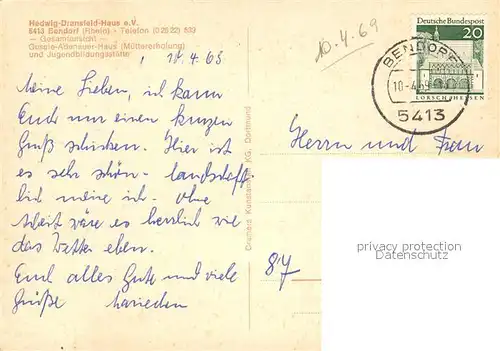 Hedwig-Dransfeld-Haus e.V.
5413 Bendorf (Rhein) - Telefon (02622) 533
- Gesamtansicht -
Gussie-Adenauer-Haus (Müttererholung)
und Jugendbildungsstätte
10.4.69
Deutsche Bundespost
20
LORSCH/HESSEN
BENDORF
5413
10.4.69
Meine Lieben, ich kann
Euch nur einen kurzen
Gruß schicken. Hier ist
es sehr schön - landschaft-
lich meine ich. Ohne
wäre es herrlich wie
das Wetter eben.
Euch alles Gute und viele
Grüße
Herrn und Frau
87
KG, Dortmund
privacy protection
Datenschutz